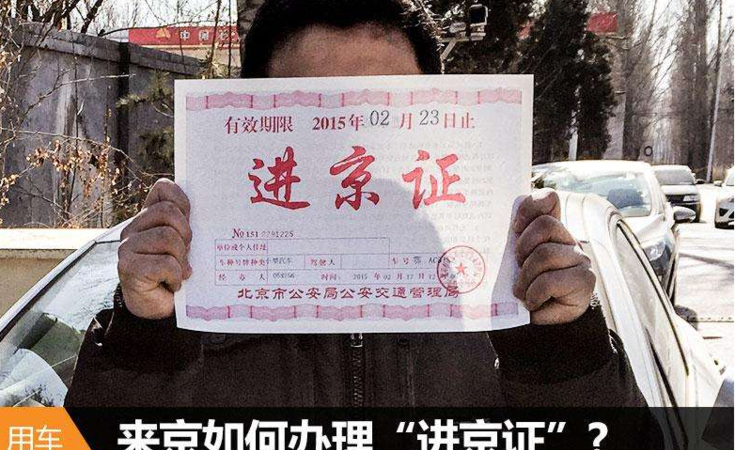 中国石
有效期限 2015年02月23日止
进京证
单位或个人住址
车种号牌种类 小型汽车 驾驶人 车号 鄂
经办人 时间: 2015 年 02 月
北京市公安局公安交通管理局
用车
来京如何办理“进京证”?